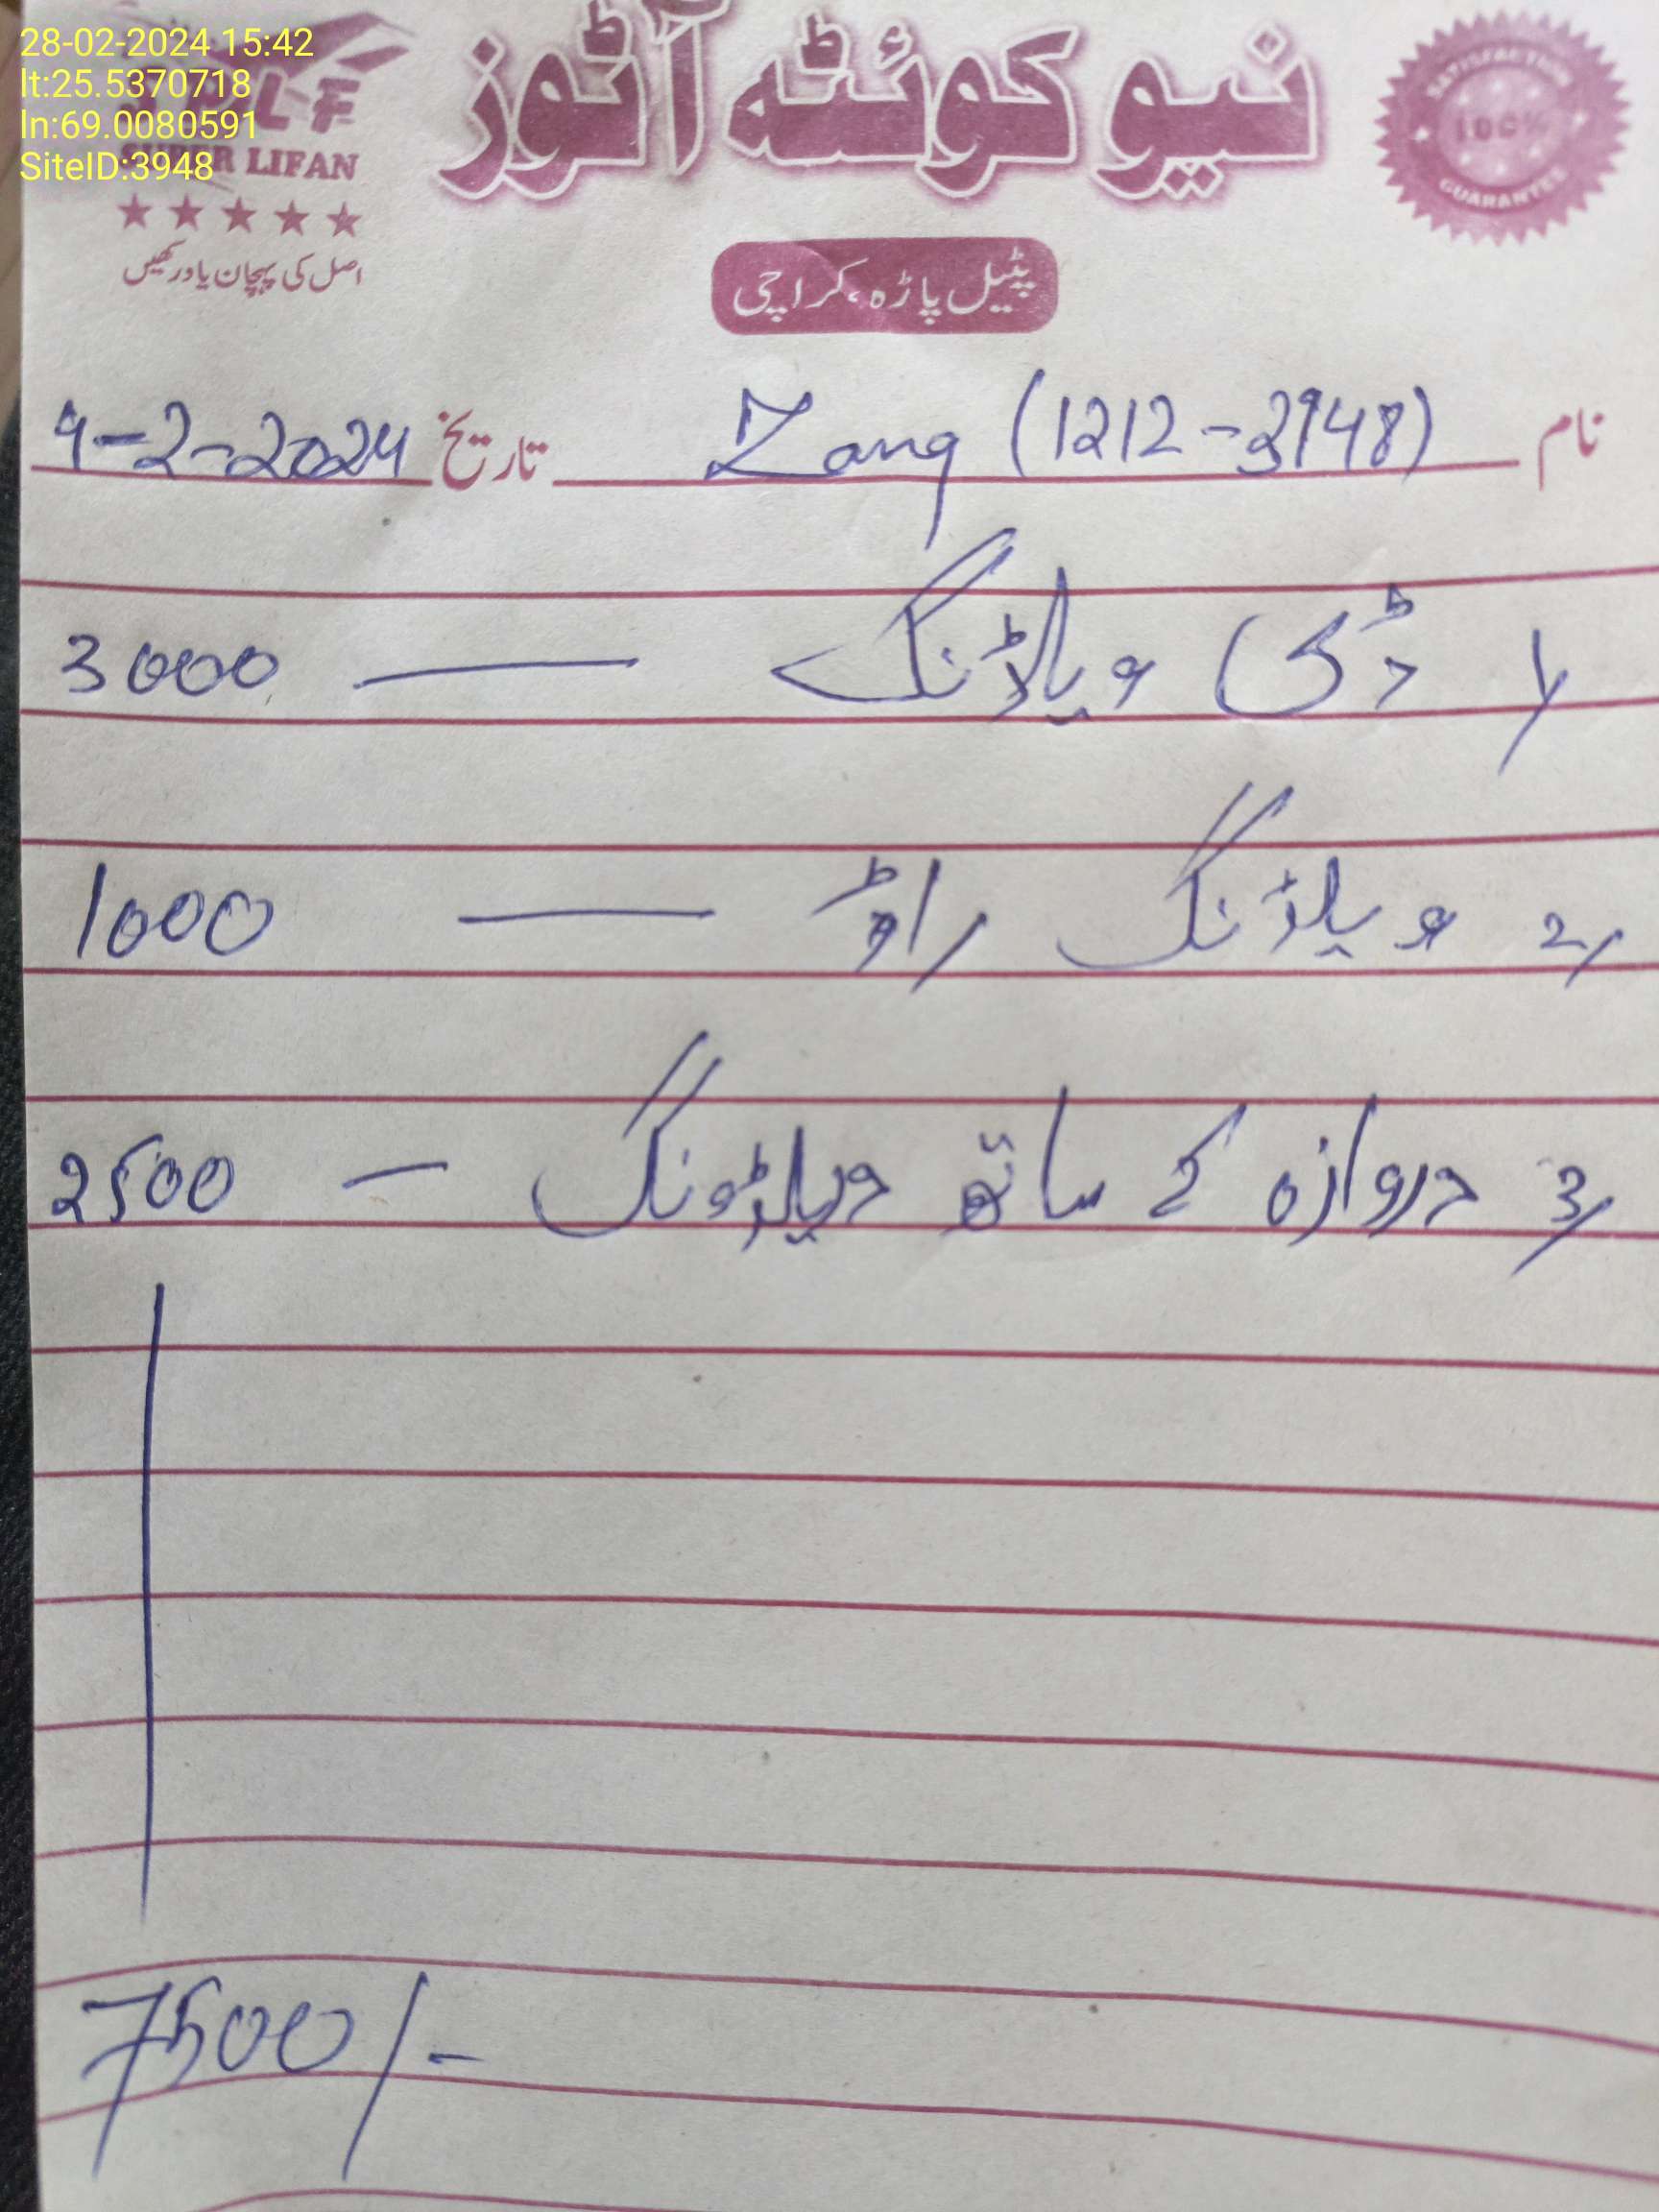 28-02-2024 15:42
lt:25.5370718
ln:69.0080591
SiteID:3948
نیو کوئٹہ آٹوز
SUPER LIFAN
SATISFACTION
100%
GUARANTEE
اصل کی پہچان یاد رکھیں
پٹیل پاڑہ، کراچی
نام Zong (1212-3948) تاریخ 9-2-2024
1/ ڈی ویلڈنگ — 3000
2/ ویلڈنگ راڈ — 1000
3/ دروازہ کے ساتھ ویلڈونگ — 2500
7500/-